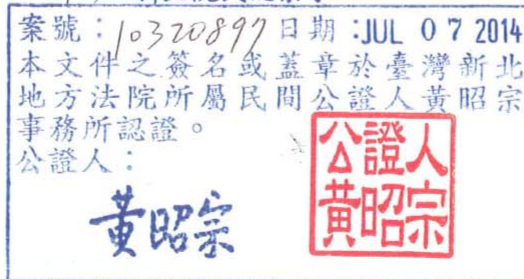 案號：10320897日期：JUL 07 2014
本文件之簽名或蓋章於臺灣新北
地方法院所屬民間公證人黃昭宗
事務所認證。
公證人：
黃昭宗
公證人
黃昭宗